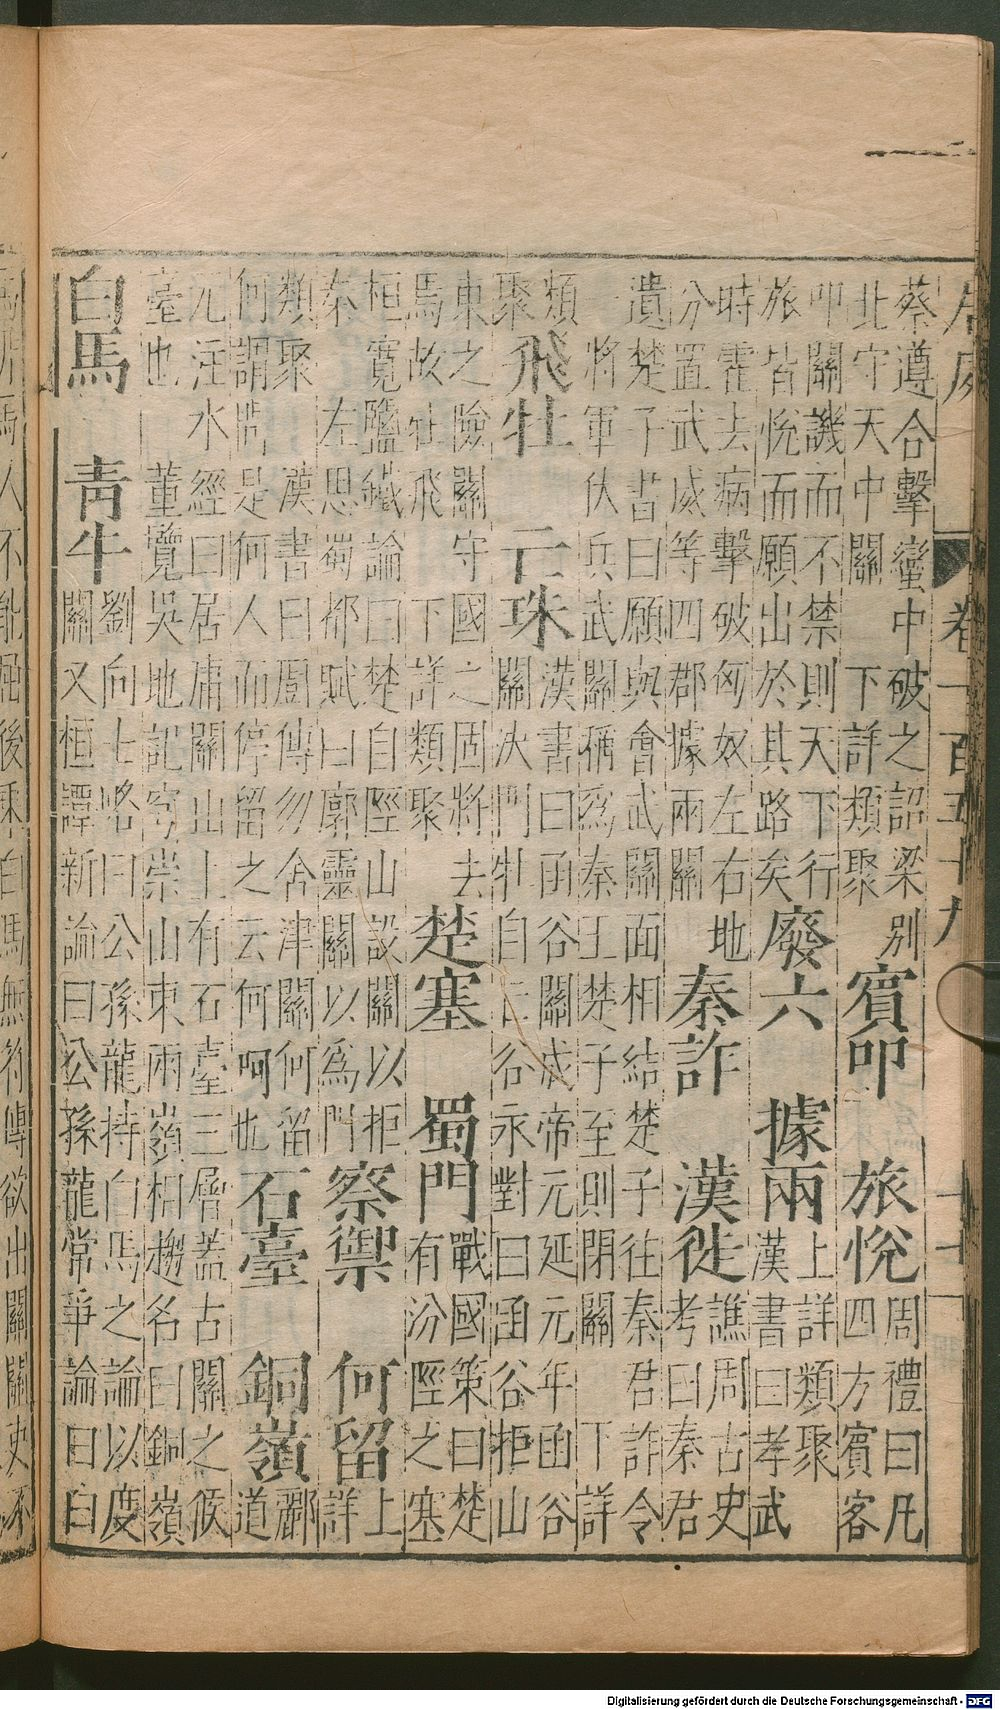 居處 卷一百五十九 十七
蔡遵合擊蠻中破之詔梁別
北守天中關 下詳類聚
賓叩 旅悅
周禮曰凡
四方賓客
叩關譏而不禁則天下行
旅皆悅而願出於其路矣
廢六 據兩
上詳類聚
漢書曰孝武
時霍去病擊破匈奴左右地
分置武威等四郡據兩關
秦詐 漢徙
譙周古史
考曰秦君
遺楚子書曰願與會武關面相結楚子往秦君詐令
一將軍伏兵武關稱為秦王楚子至則閉關 下詳
類
聚
飛牡 亡珠
漢書曰函谷關成帝元延元年函谷
關決門牡自亡谷永對曰函谷拒山
東之險關守國之固將去
焉故牡飛 下詳類聚
楚塞 蜀門
戰國策曰楚
有汾陘之塞
桓寬鹽鐵論曰楚自陘山設關以拒
秦左思蜀都賦曰廓靈關以為門
察禦 何留
上
詳
類聚 漢書曰周傳勿舍津關何留
何謂問是何人而停留之云何呵也
石臺 銅嶺
酈
道
元注水經曰居庸關山上有石臺三層蓋古關之候
臺也 董覽吳地記穹崇山東兩嶺相趨名曰銅嶺
白馬 青牛
劉向七略曰公孫龍持白馬之論以度
關又桓譚新論曰公孫龍常爭論曰白
馬非馬人不能屈後乘白馬無符傳欲出關關吏不
Digitalisierung gefördert durch die Deutsche Forschungsgemeinschaft - DFG